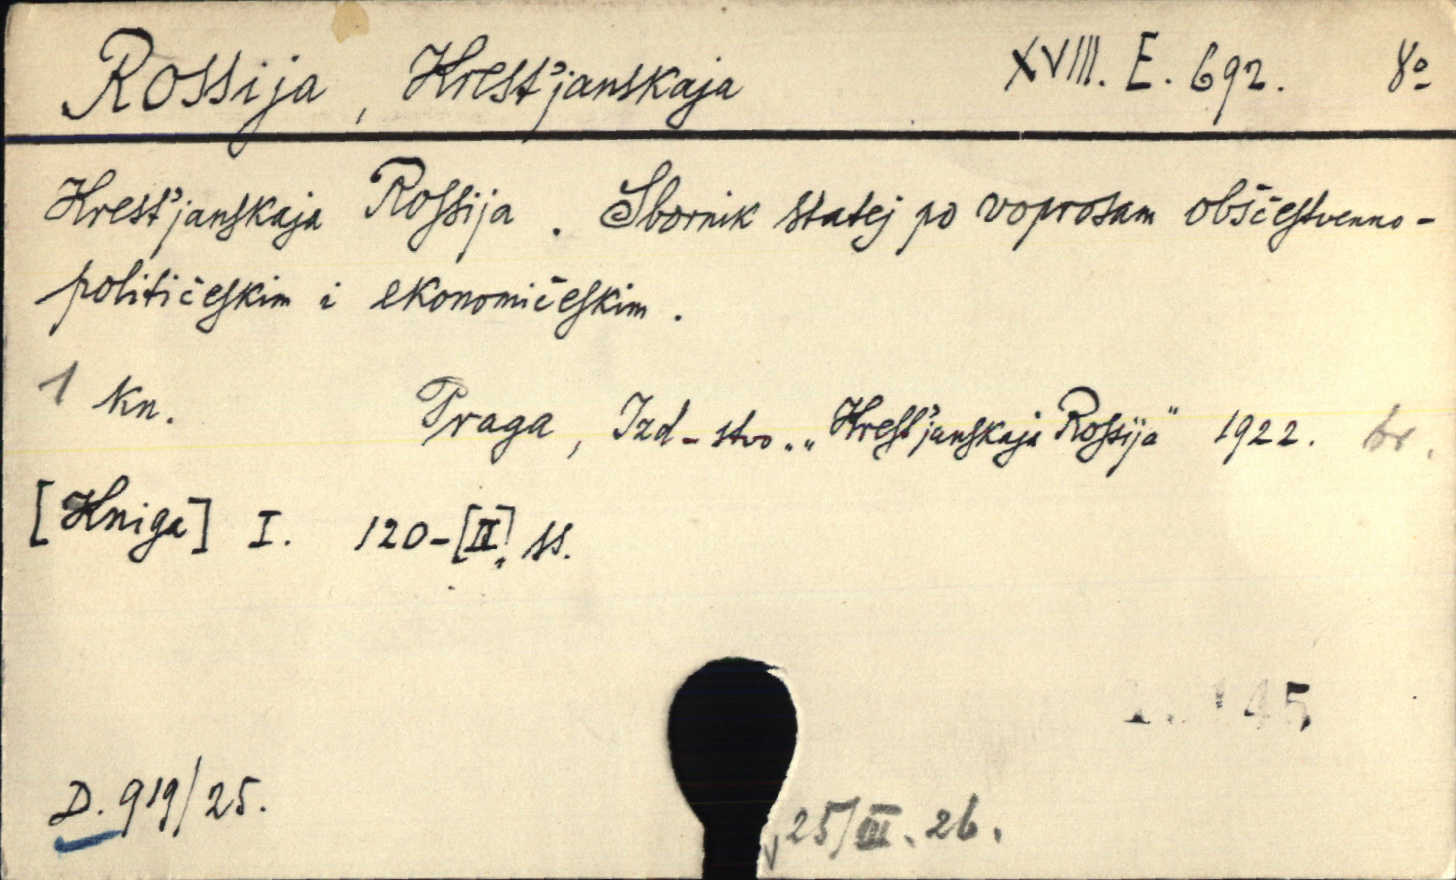 Rossija, Krest'janskaja XVIII. E. 692. 8º
Krest'janskaja Rossija. Sbornik statej po voprosam obščestvenno-
političeskim i ekonomičeskim.
1 kn. Praga, Izd-stvo. „Krest'janskaja Rossija" 1922. br.
[Kniga] I. 120-[II] ss.
D. 919/25.
25/III. 26.